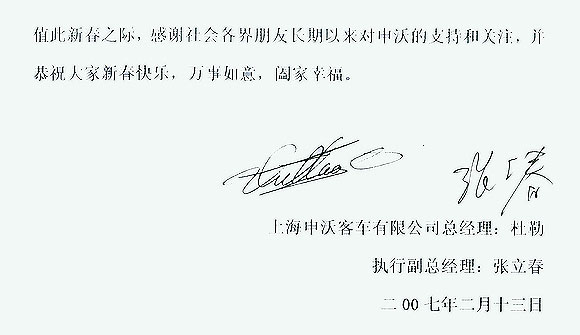 值此新春之际，感谢社会各界朋友长期以来对申沃的支持和关注，并
恭祝大家新春快乐，万事如意，阖家幸福。
上海申沃客车有限公司总经理：杜勒
执行副总经理：张立春
二00七年二月十三日